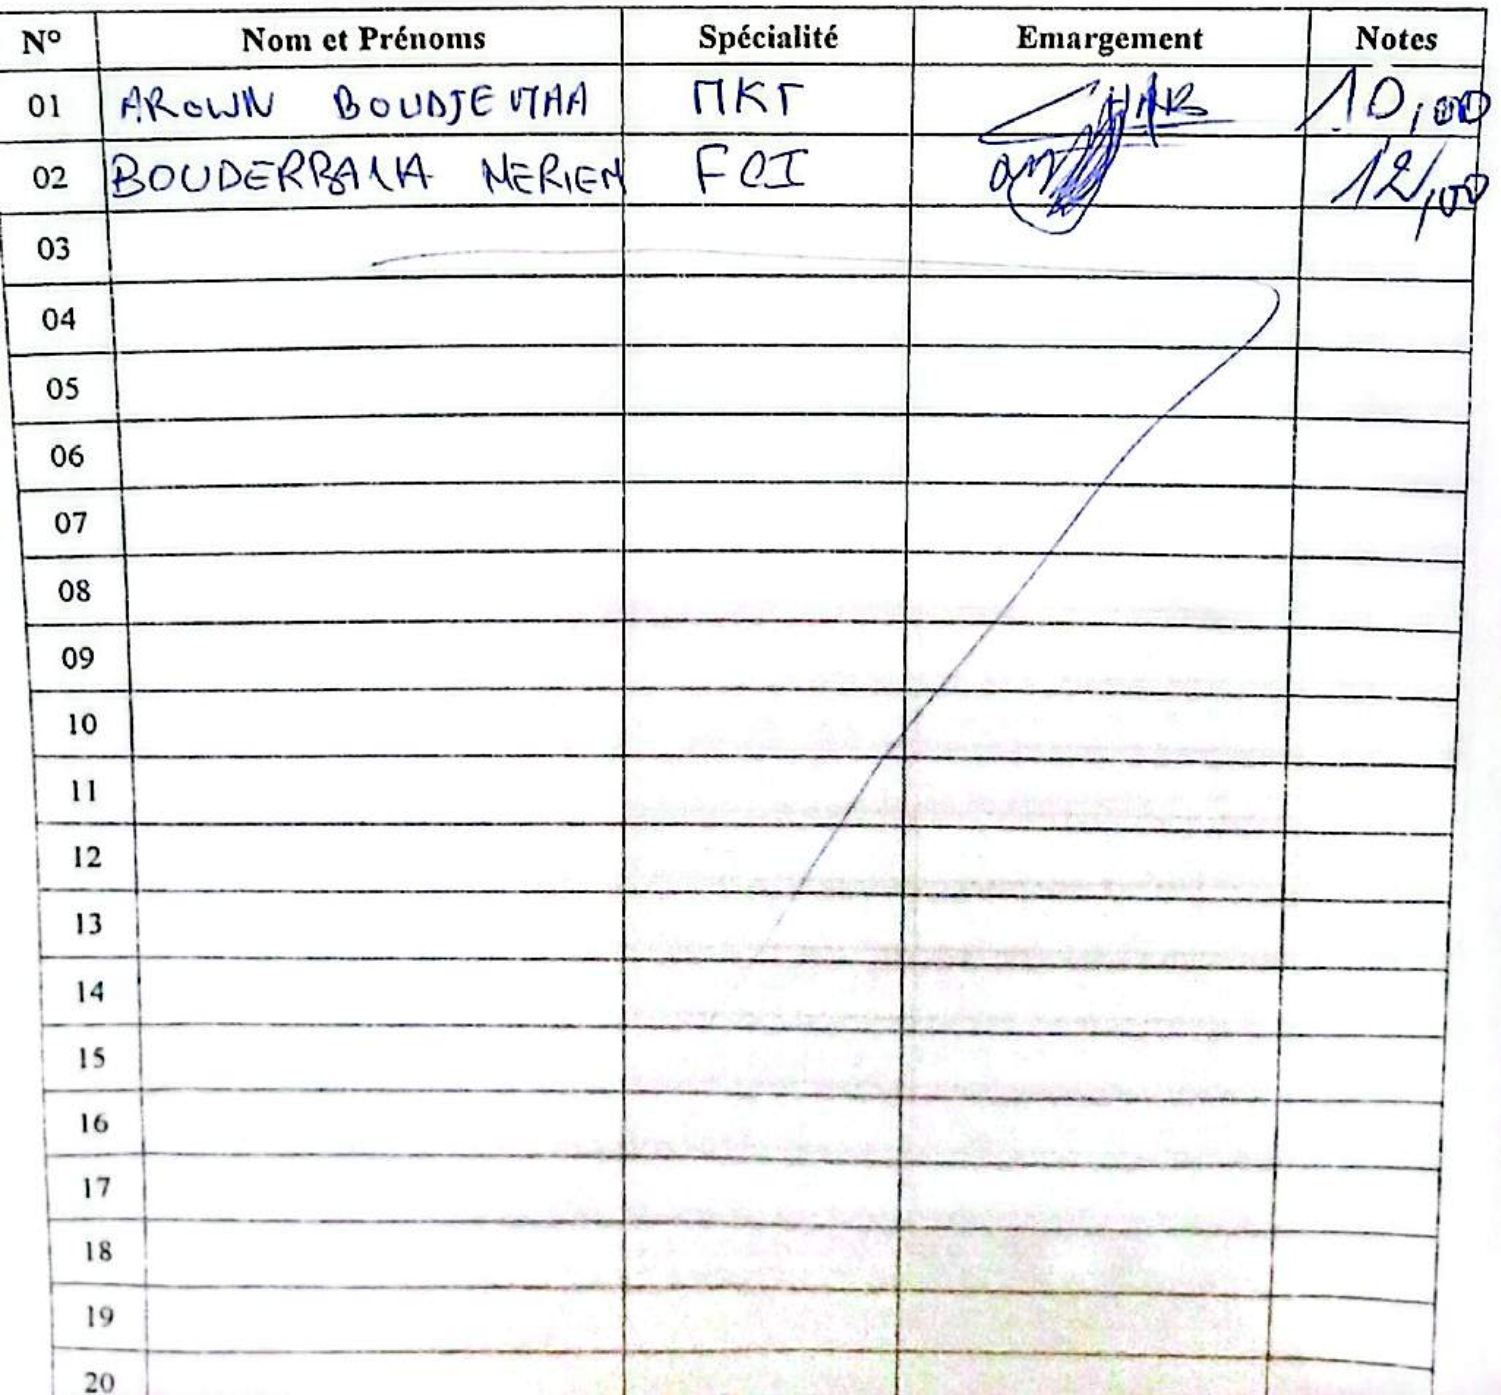 N° Nom et Prénoms Spécialité Emargement Notes
01 AROWN BOUDJEMAA MKT 10,00
02 BOUDERBALA MERIEM FCI 12,00
03
04
05
06
07
08
09
10
11
12
13
14
15
16
17
18
19
20